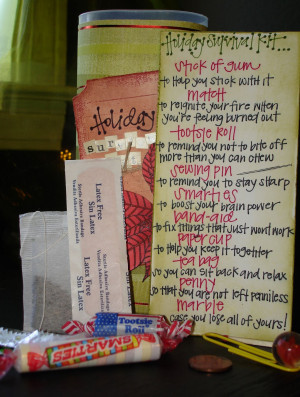 Holiday Survival Kit...
stick of gum
to help you stick with it
match
to reignite your fire when
you're feeling burned out
tootsie roll
to remind you not to bite off
more than you can chew
sewing pin
to remind you to stay sharp
smarties
to boost your brain power
band-aid
to fix things that just won't work
paper cup
to help you keep it together
tea bag
so you can sit back and relax
penny
so that you are not left penniless
marble
case you lose all of yours!
Holiday
sur
Latex Free
Sin Latex
Sterile Adhesive Bandages
Vendita Adhesiva Esterilizadas
Latex Free
Sin Latex
Sterile Adhesive Bandages
Tootsie
Roll
SMARTIES